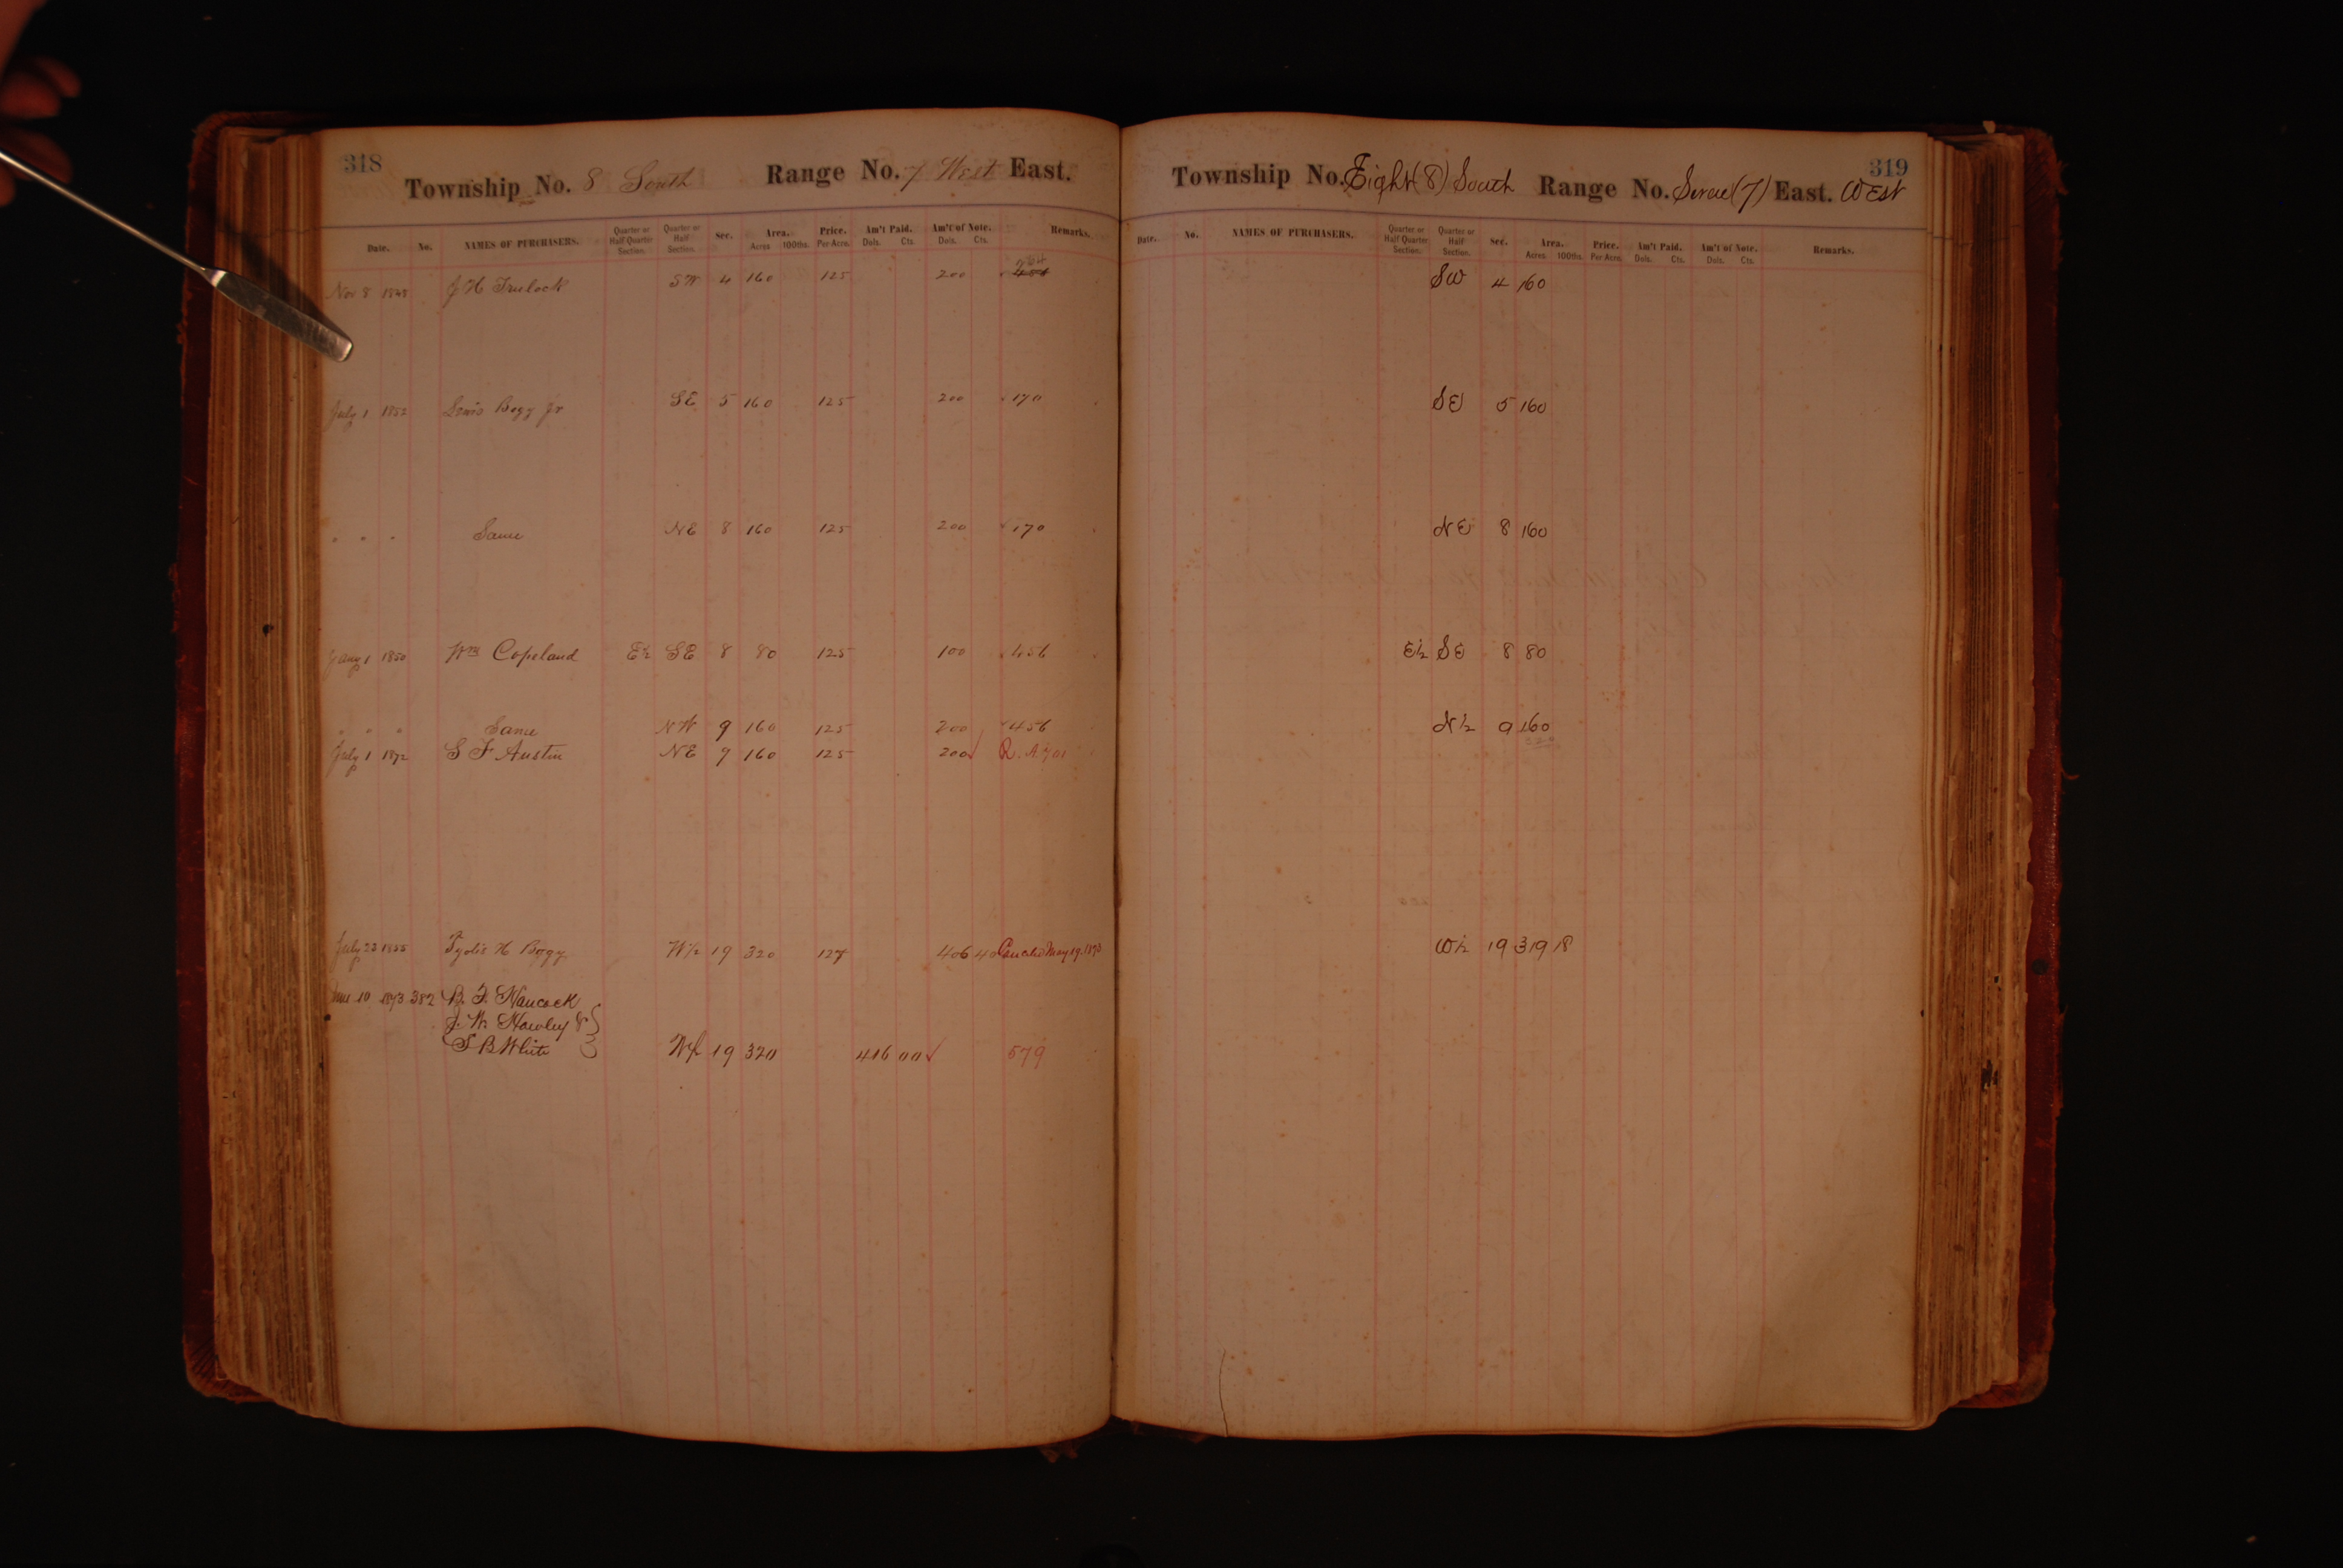 318
Township No. 8 South Range No. 7 West East.
Date. No. NAMES OF PURCHASERS. Quarter or Half Quarter Section. Quarter or Half Section. Sec. Area. Acres 100ths. Price. Per Acre. Am't Paid. Dols. Cts. Am't of Note. Dols. Cts. Remarks.
Nov 8 1848 J H Trulock SW 4 160 125 200
July 1 1852 Lewis Bogy Jr SE 5 160 125 200 170
" " " Same NE 8 160 125 200 170
1850 Wm Copeland E½ SE 8 80 125 100 456
" " " Same NW 9 160 125 200 456
July 1 1872 S F Austin NE 9 160 125 200
July 23 1855 H Bogy W½ 19 320 127 406 40 May 19. 1873
June 10 1873 382 B. F. Hancock
J. W. Hawley &
S B White W½ 19 320 416 00 579
319
Township No. Eight (8) South Range No. Seven (7) East. West
Date. No. NAMES OF PURCHASERS. Quarter or Half Quarter Section. Quarter or Half Section. Sec. Area. Acres. 100ths. Price. Per Acre. Am't Paid. Dols. Cts. Am't of Note. Dols. Cts. Remarks.
SW 4 160
SE 5 160
NE 8 160
E½ SE 8 80
N½ 9 160
W½ 19 319 18